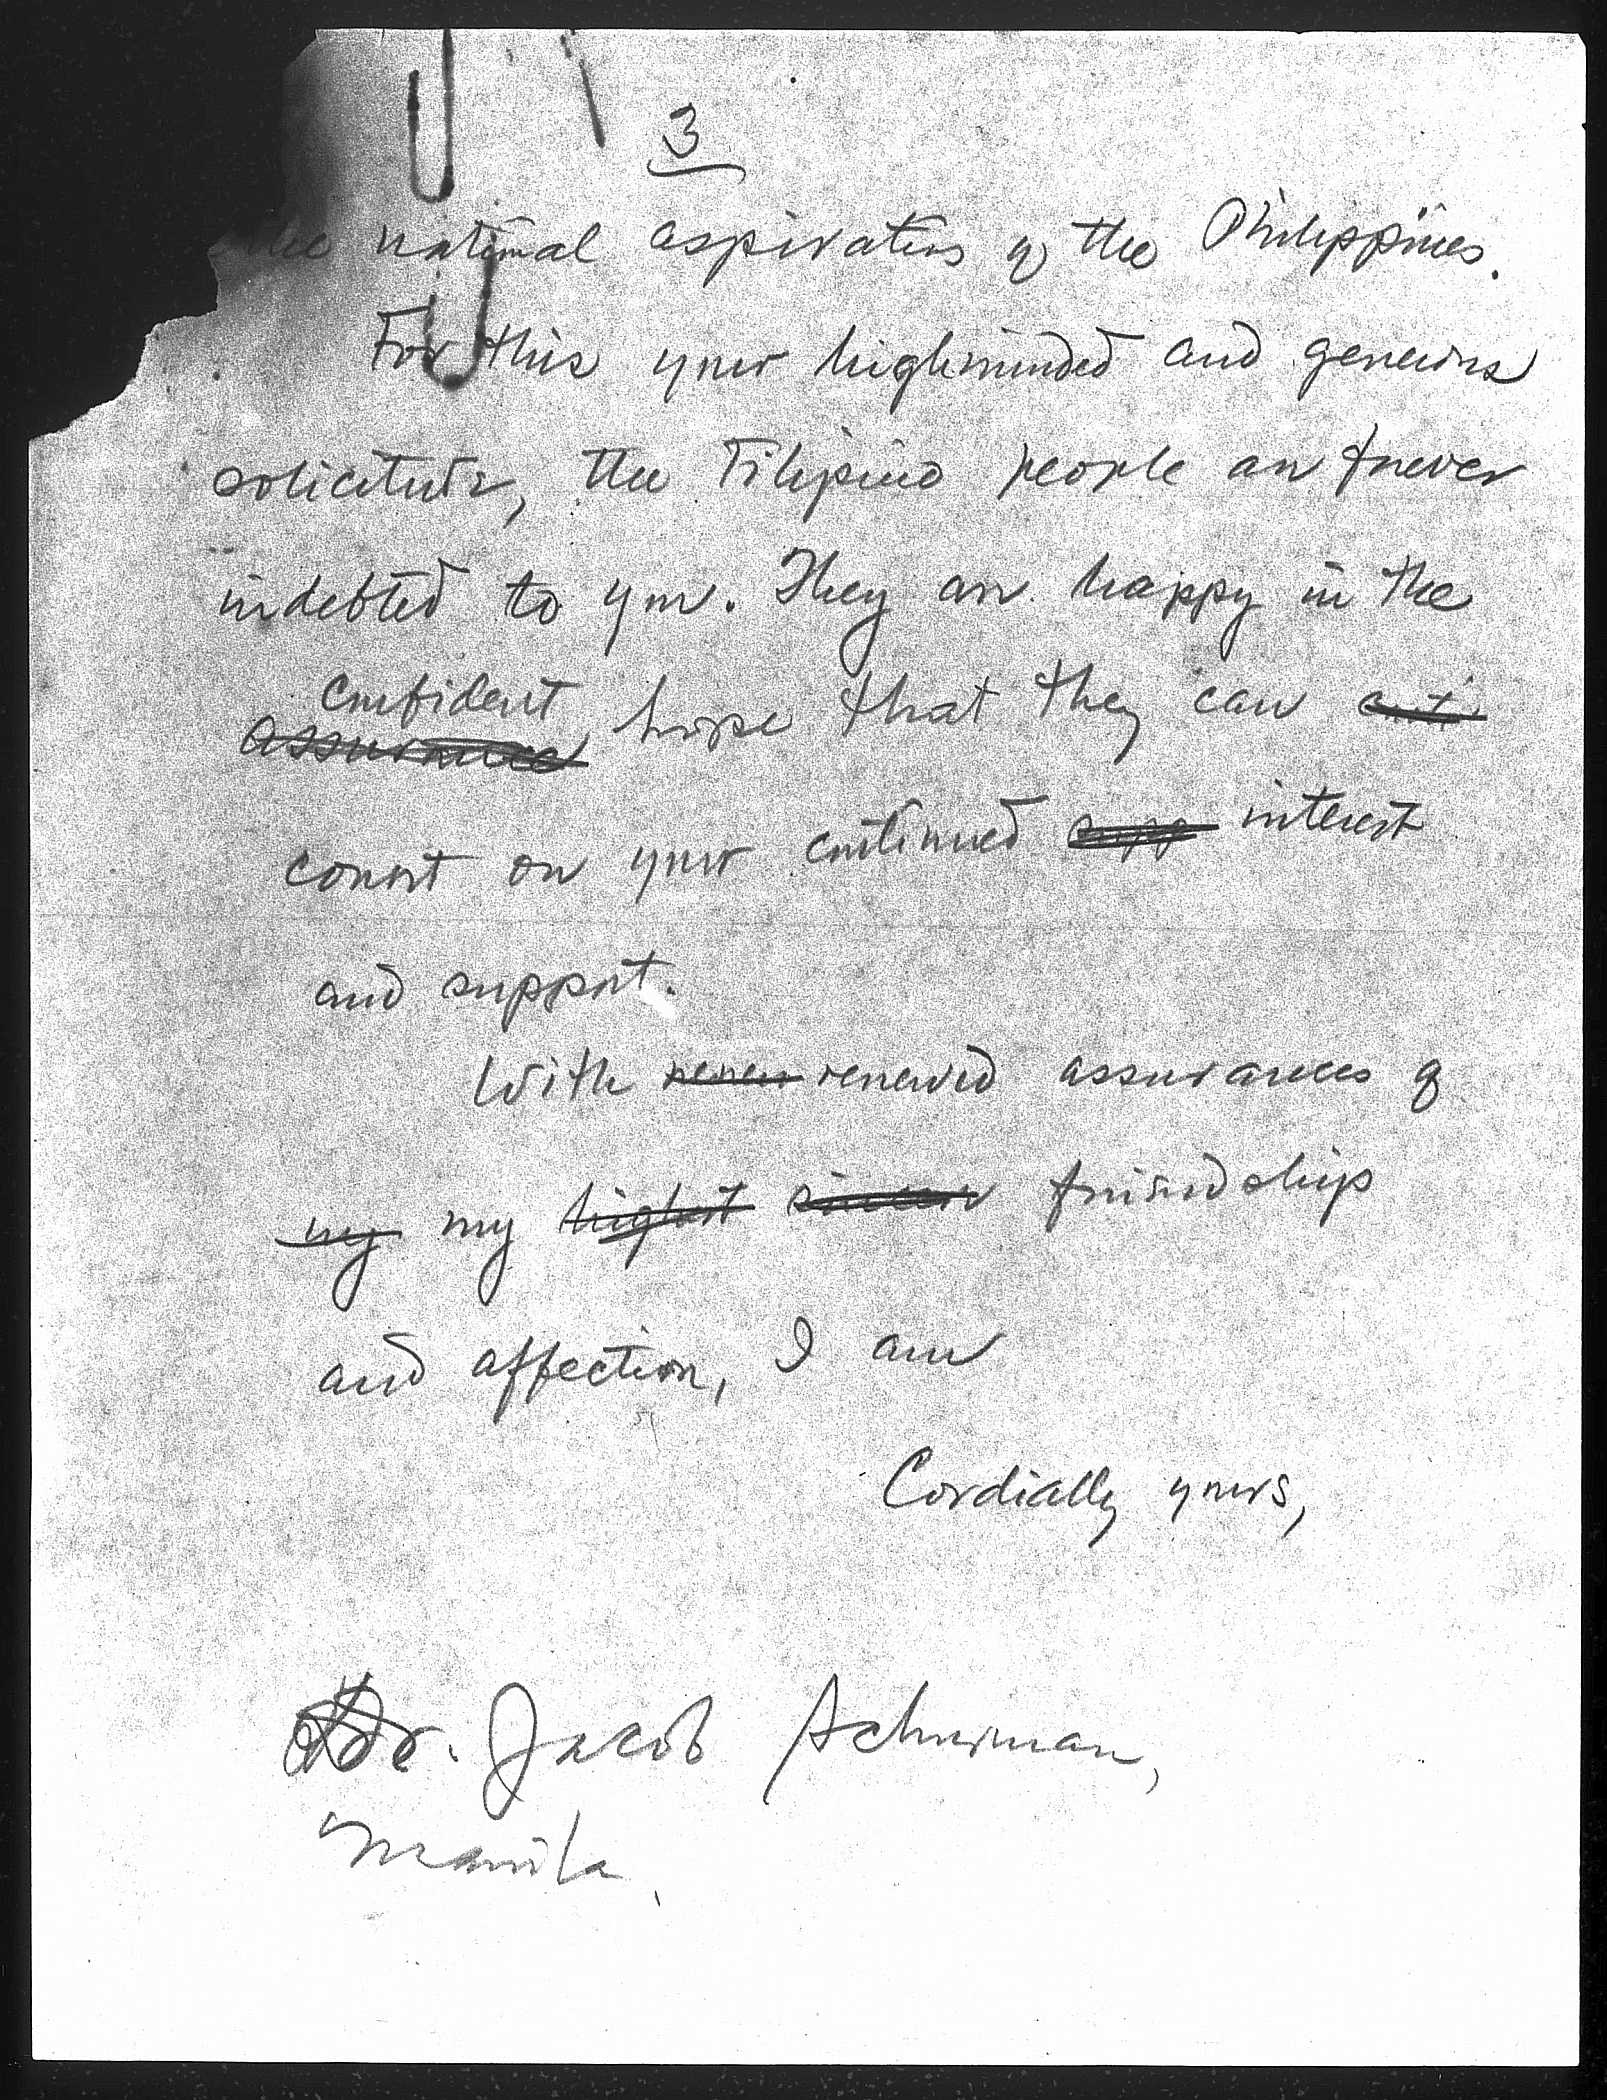 3
the national aspirations of the Philippines.
For this your highminded and generous
solicitude, the Filipino people are forever
indebted to you. They are happy in the
confident
assurance hope that they can conti
count on your continued supp interest
and support.
With renew renewed assurances of
my my highest sincere friendship
and affection, I am
Cordially yours,
Dr. Jacob Schurman,
Manila.